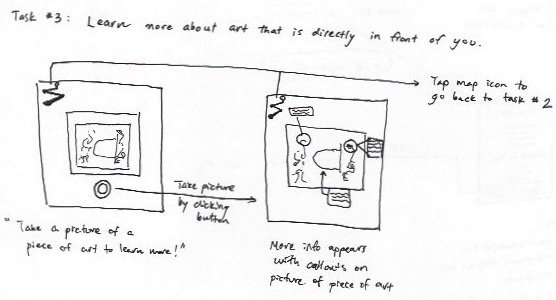 Task #3: Learn more about art that is directly in front of you.
Tap map icon to
go back to task #2
Take picture
by clicking
button
"Take a picture of a
piece of art to learn more!"
More info appears
with callouts on
picture of piece of art